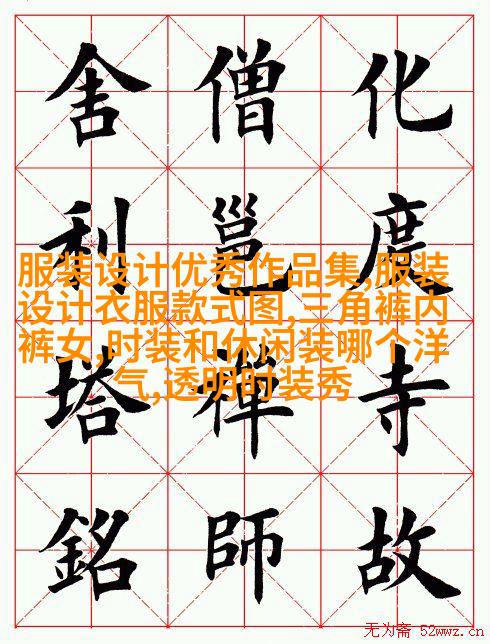 化度寺故
僧邕禪師
舍利塔銘
服装设计优秀作品集,服装
设计衣服款式图,三角裤内
裤女,时装和休闲装哪个洋
气,透明时装秀
无为斋 52wwz.cn